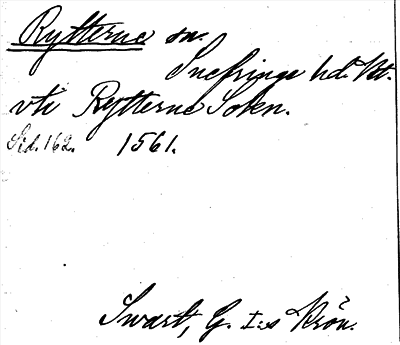 Rytterne sn.
Snefringe hd. Vt.
vti Rytterne Sokn.
Sid. 162. 1561.
Swart, G. I:s Krön.